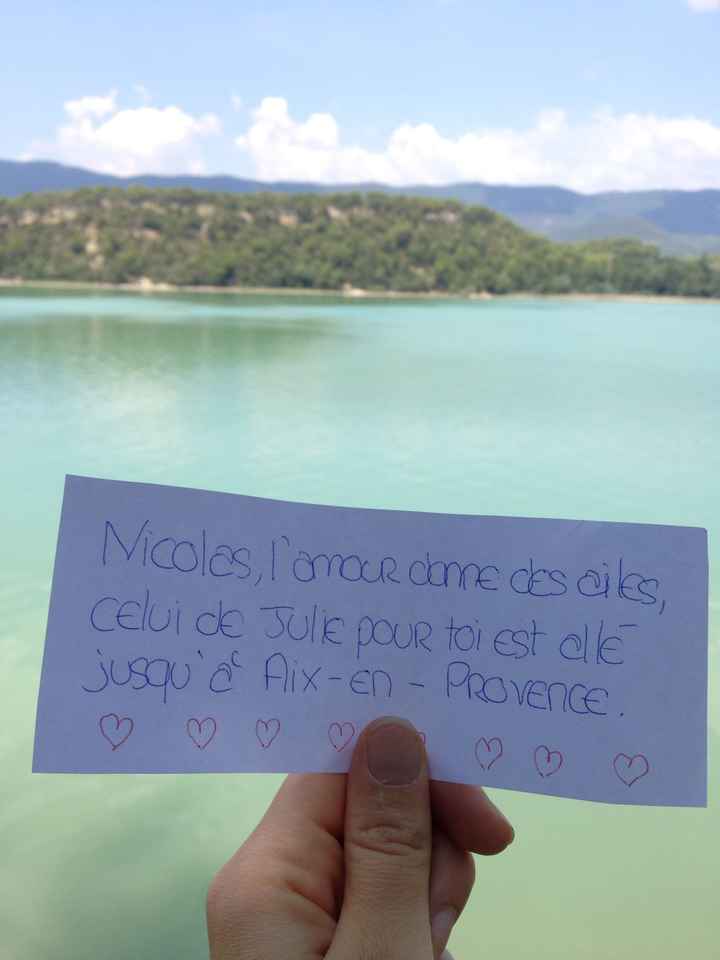 Nicolas, l'amour donne des ailes,
celui de Julie pour toi est allé
jusqu'à Aix-en-Provence.